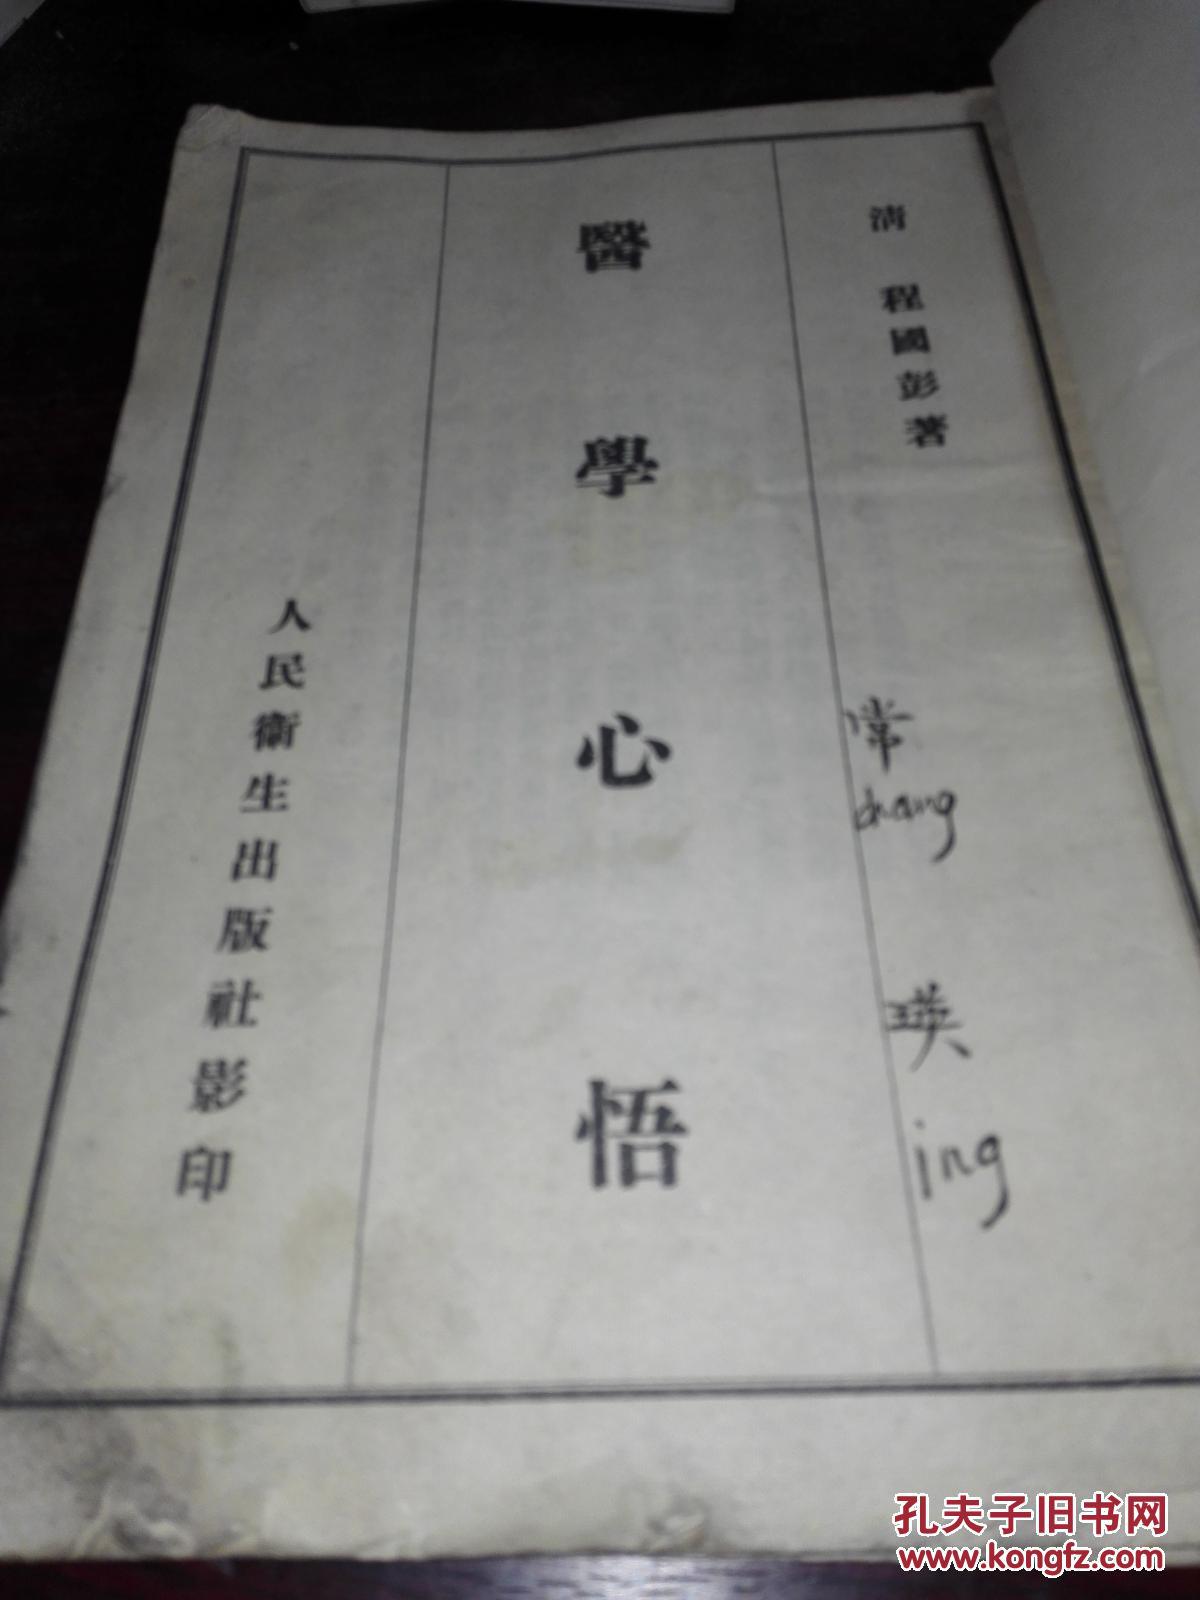 清 程國彭著
醫學心悟
人民衛生出版社影印
常
chang
瑛
ing
孔夫子旧书网
www.kongfz.com